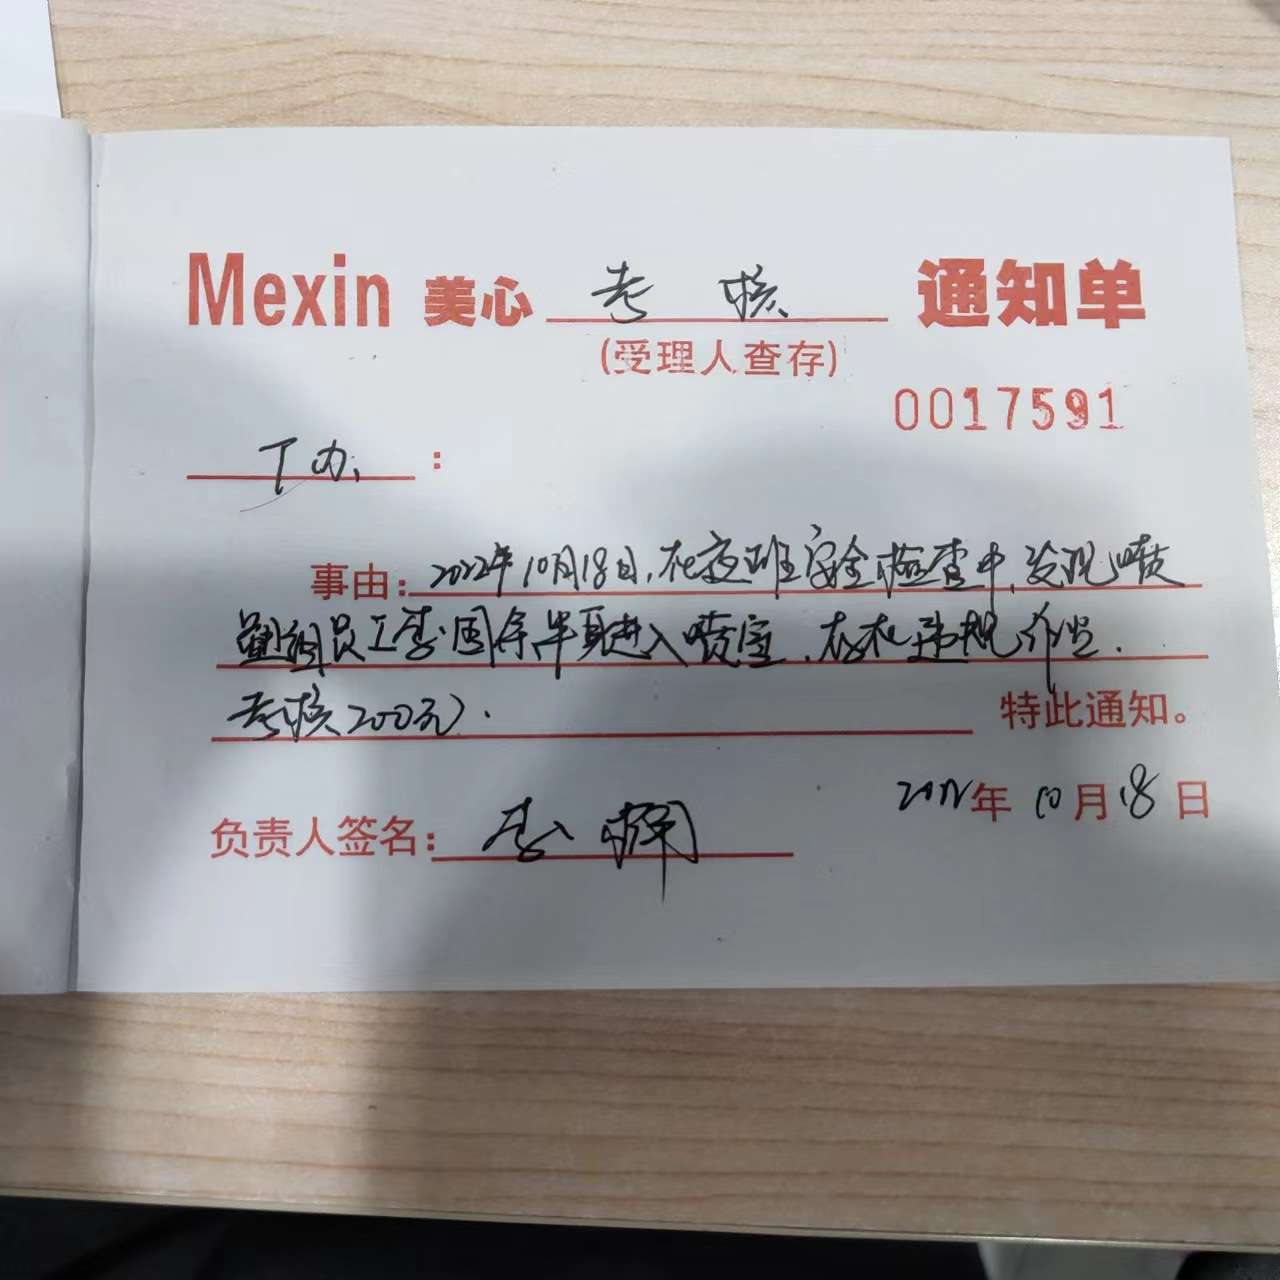 Mexin 美心 考核 通知单
(受理人查存)
0017591
厂办:
事由:2022年10月18日,在夜班安全检查中,发现喷
组员工李国余半身进入喷室,存在违规作业.
考核200元. 特此通知。
2022年10月18日
负责人签名:李